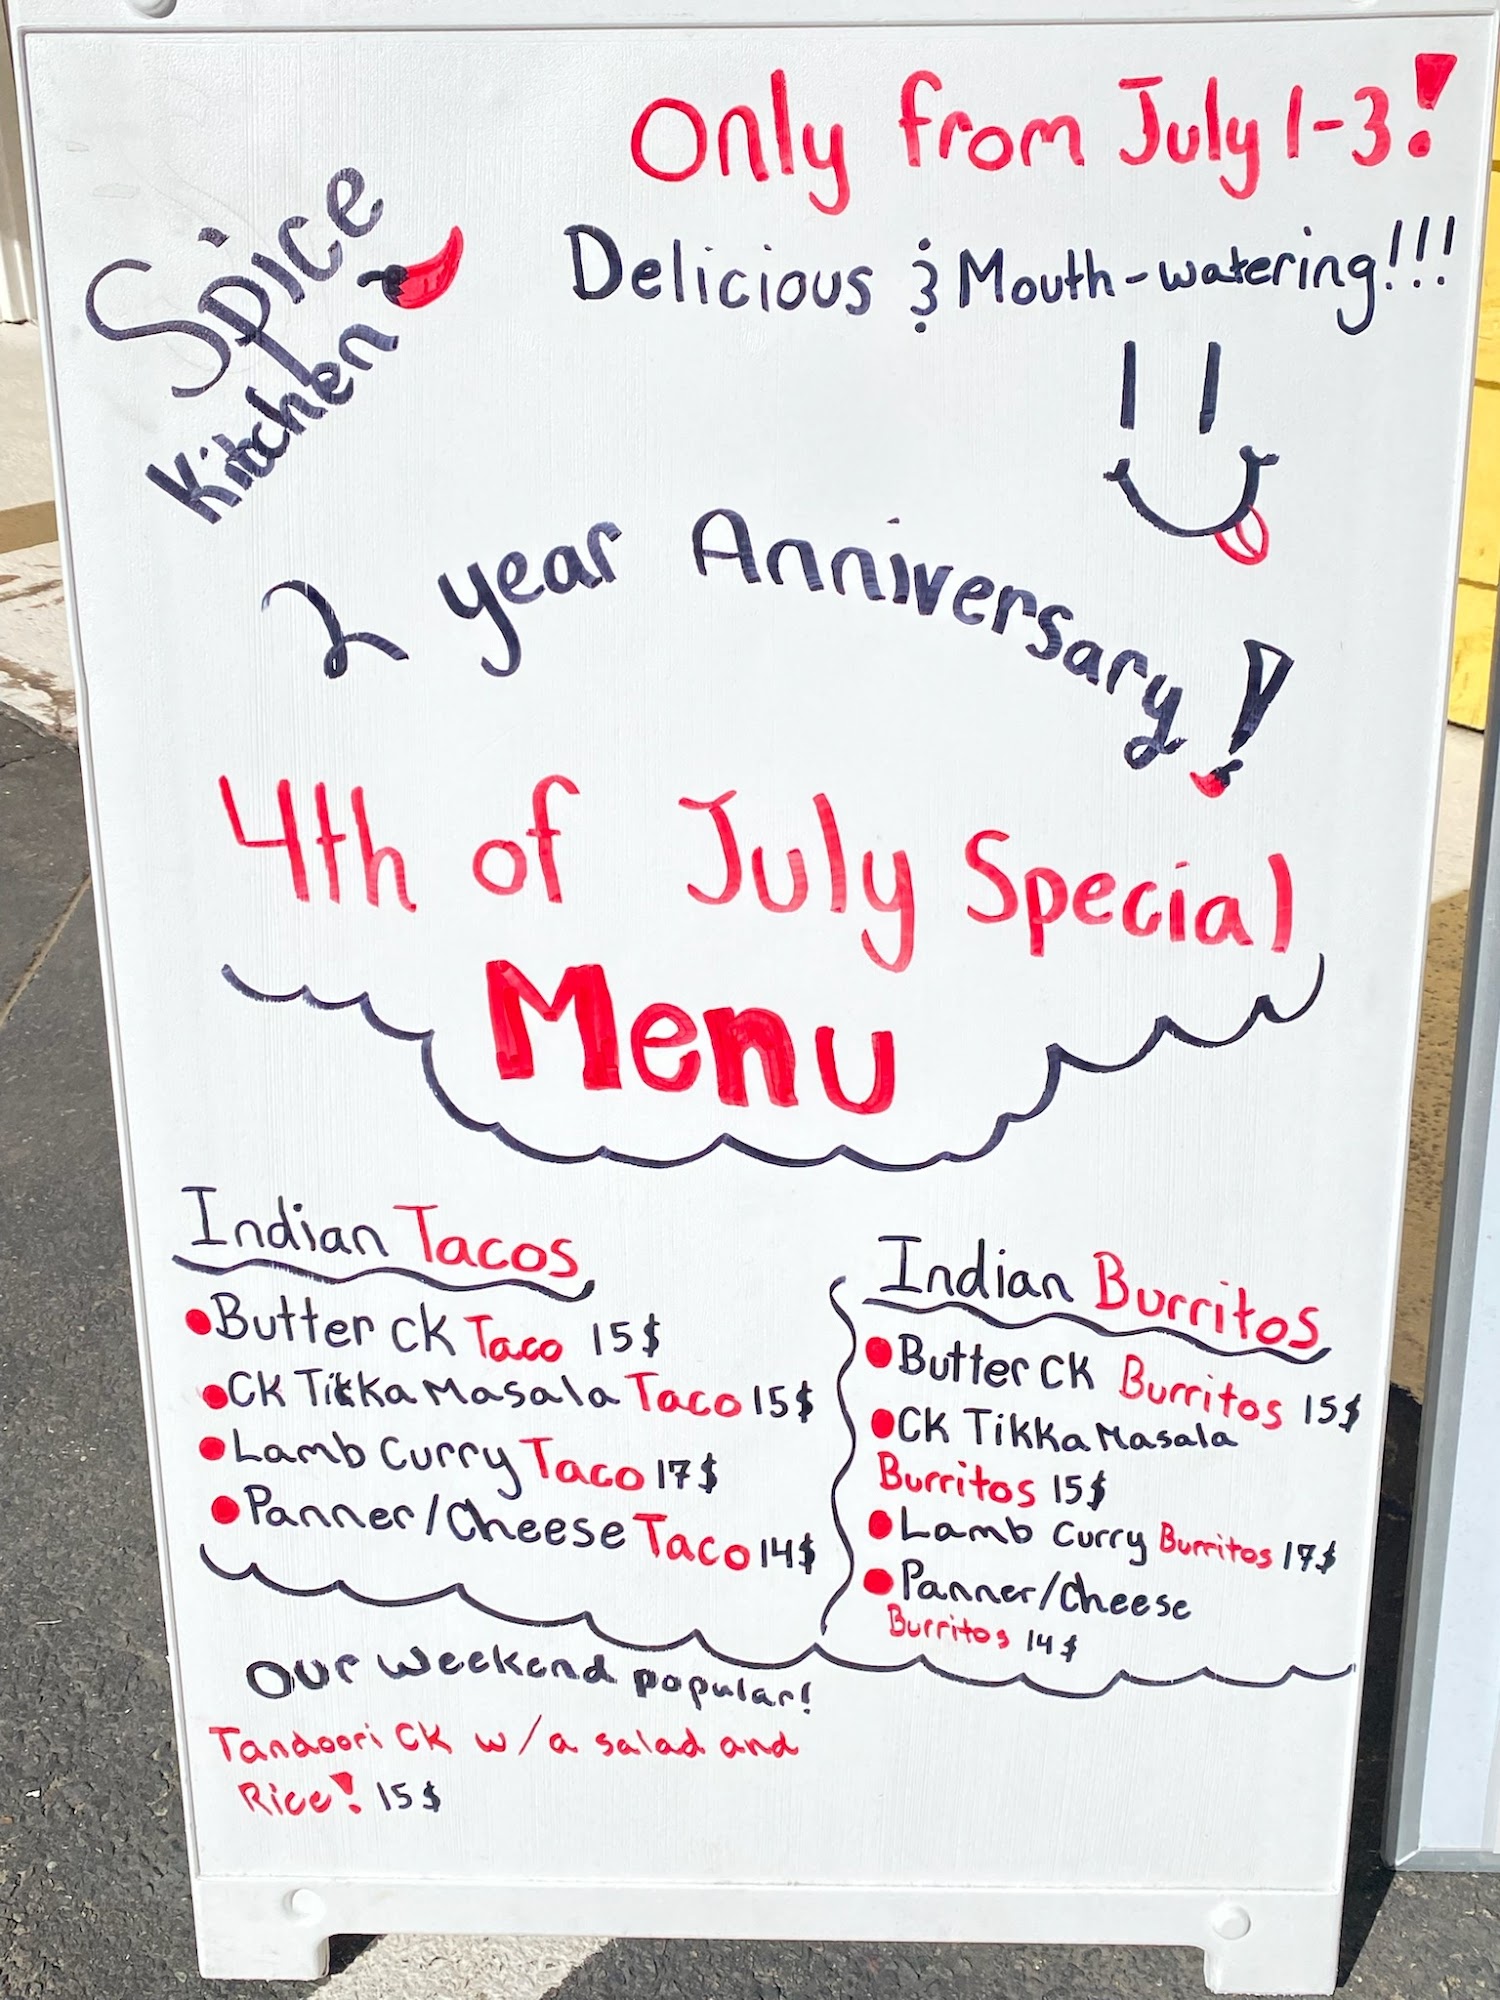 Only from July 1-3!
Spice
Kitchen
Delicious & Mouth-watering!!!
2 year Anniversary!
4th of July Special
Menu
Indian Tacos
•Butter CK Taco 15$
•CK Tikka Masala Taco 15$
•Lamb Curry Taco 17$
•Panner/Cheese Taco 14$
Indian Burritos
•Butter CK Burritos 15$
•CK Tikka Masala
Burritos 15$
•Lamb Curry Burritos 17$
•Panner/Cheese
Burritos 14$
Our weekend popular!
Tandoori CK w/a salad and
Rice! 15$